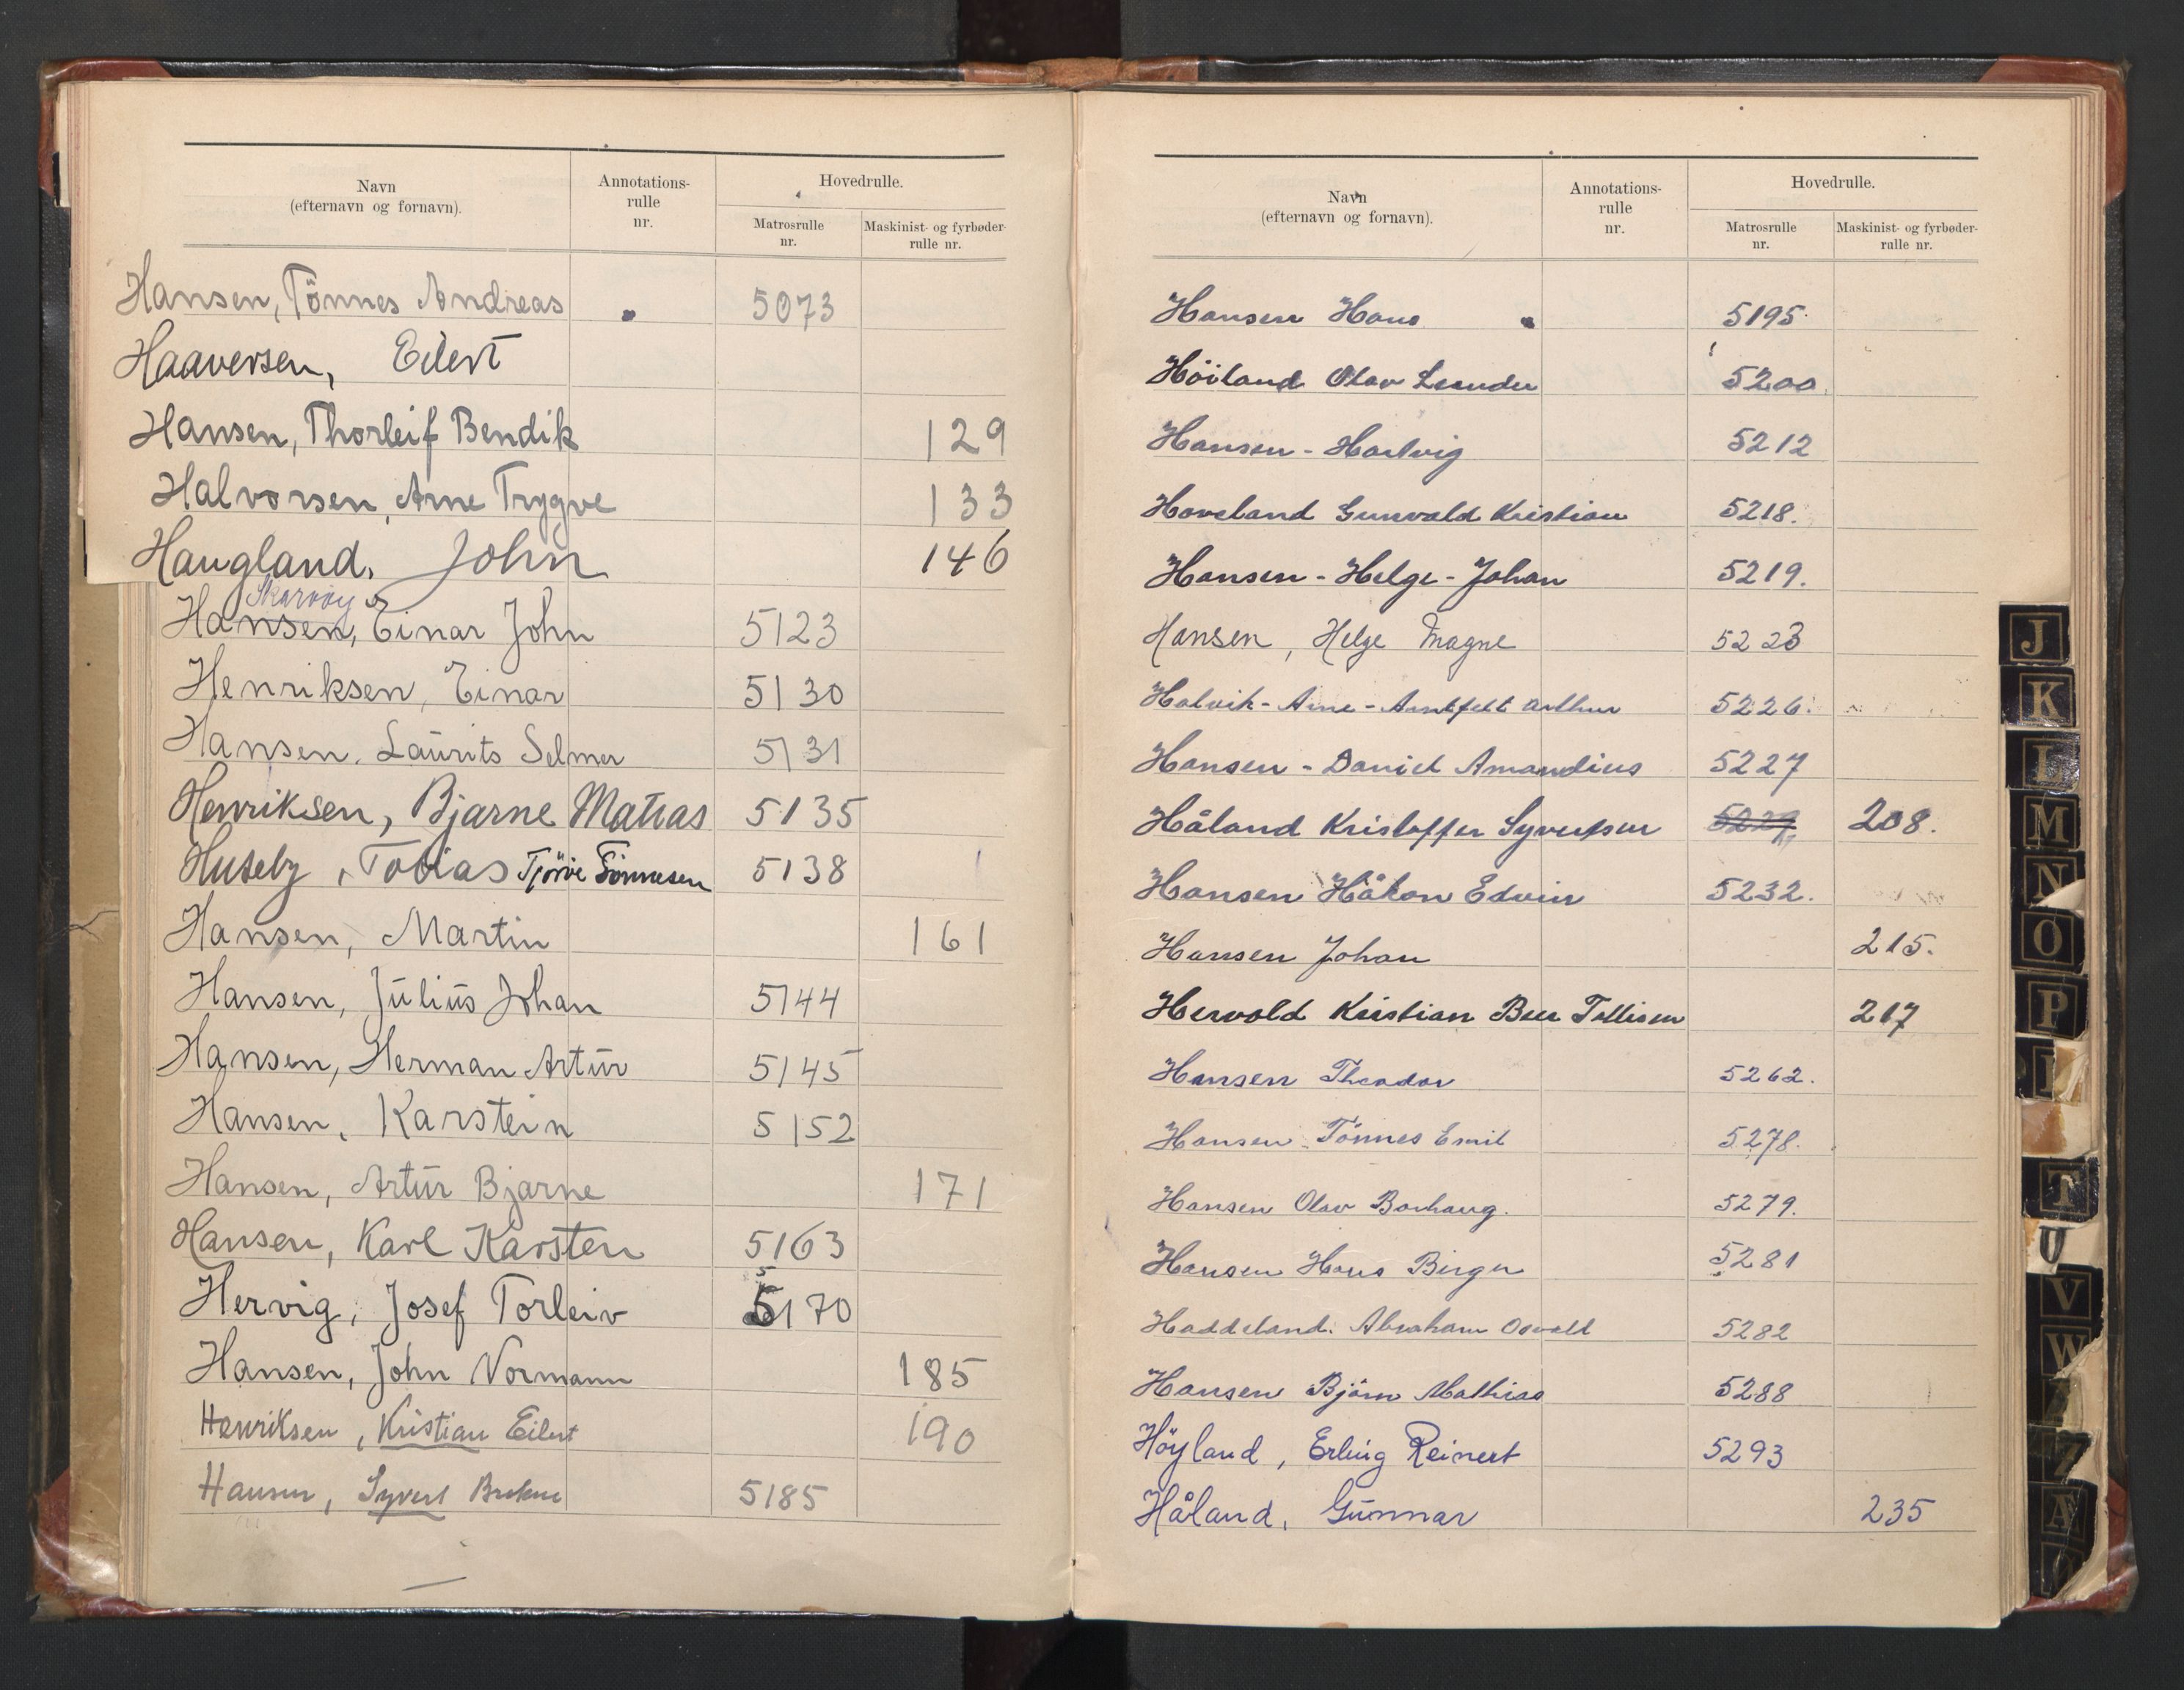 Navn
(efternavn og fornavn).
Annotations-
rulle
nr.
Hovedrulle.
Matrosrulle
nr.
Maskinist- og fyrbøder-
rulle nr.
Hansen, Tönnes Andreas 5073
Haaversen, Eilert
Hansen, Thorleif Bendik 129
Halvorsen, Arne Trygve 133
Haugland, John 146
Skarvøy
Hansen, Einar John 5123
Henriksen, Einar 5130
Hansen, Laurits Selmer 5131
Henriksen, Bjarne Matias 5135
Huseby, Tobias Tjörve Tönnesen 5138
Hansen, Martin 161
Hansen, Julius Johan 5144
Hansen, Herman Artur 5145
Hansen, Karstein 5152
Hansen, Artur Bjarne 171
Hansen, Karl Karsten 5163
5
Hervig, Josef Torleiv 5170
Hansen, John Normann 185
Henriksen, Kristian Eilert 190
Hansen, Syvert 5185
Navn
(efternavn og fornavn).
Annotations-
rulle
nr.
Hovedrulle.
Matrosrulle
nr.
Maskinist- og fyrbøder-
rulle nr.
Hansen Hans 5195.
Höiland Olav Leander 5200.
Hansen - Hartvig 5212
Haveland Gunvald Kristian 5218.
Hansen - Helge - Johan 5219.
Hansen, Helge Magne 5223
Halvik - Arne - Arthur 5226.
Hansen - Daniel Amandius 5227
Håland Kristoffer Syvertsen 5229 208.
Hansen Håkon Edvin 5232.
Hansen Johan 215.
Hervold Kristian Beer Tellisen 217
Hansen Theodor 5262.
Hansen Tönnes Emil 5278.
Hansen Olav Borhaug. 5279.
Hansen Hans Birger 5281
Haddeland. Abraham Osvald 5282
Hansen Björn Mathias 5288
Höyland, Erling Reinert 5293
Håland, Gunnar 235
J
K
L
M
N
O
P
T
U
V
W
Z
Æ